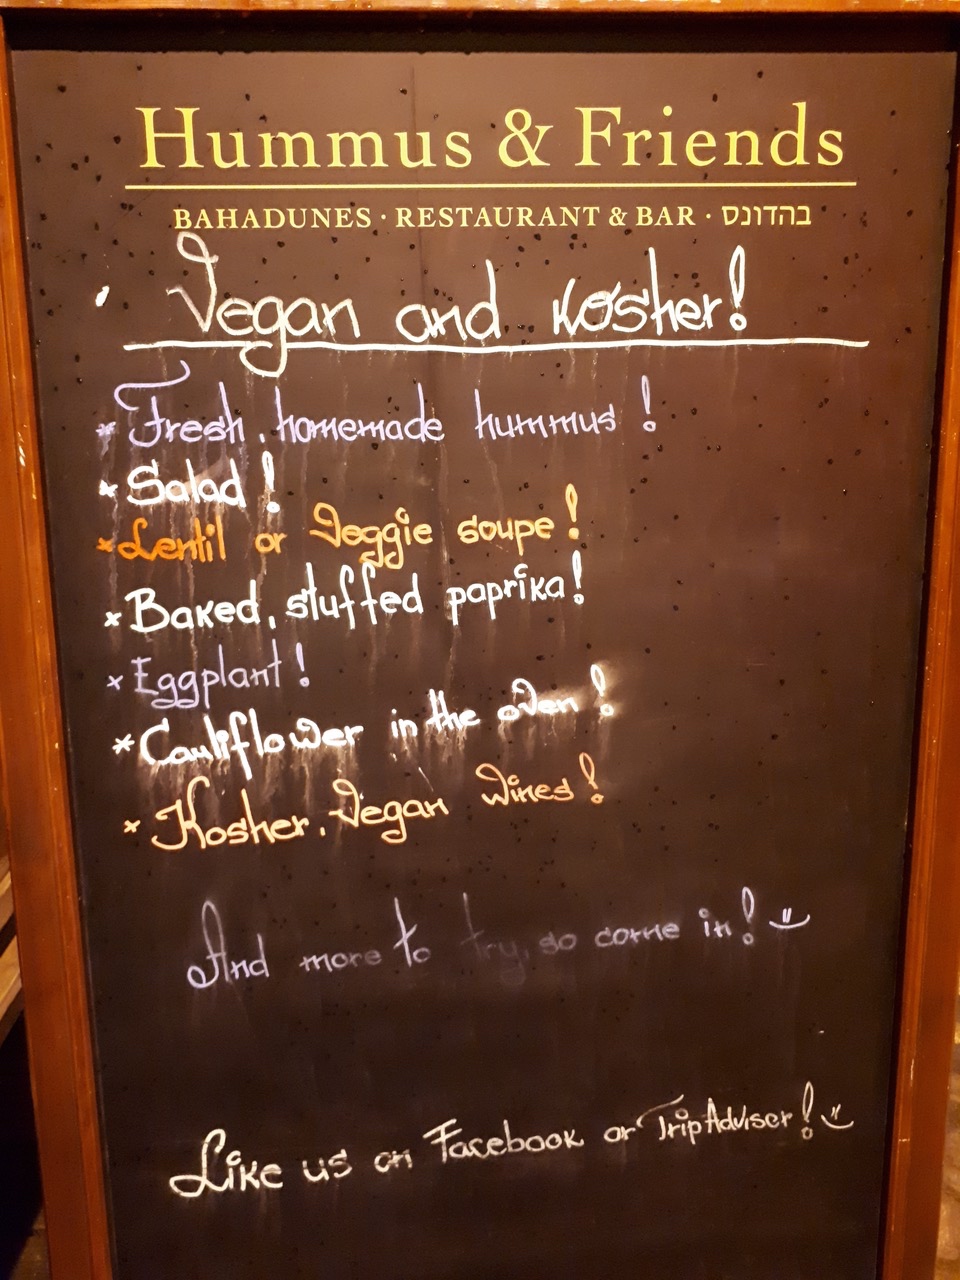 Hummus & Friends
BAHADUNES · RESTAURANT & BAR · בהדונס
Vegan and Kosher!
* Fresh, homemade hummus!
* Salad!
* Lentil or Veggie soupe!
* Baked, stuffed paprika!
* Eggplant!
* Cauliflower in the oven!
* Kosher, Vegan Wines!
And more to try, so come in!
Like us on Facebook or TripAdviser!